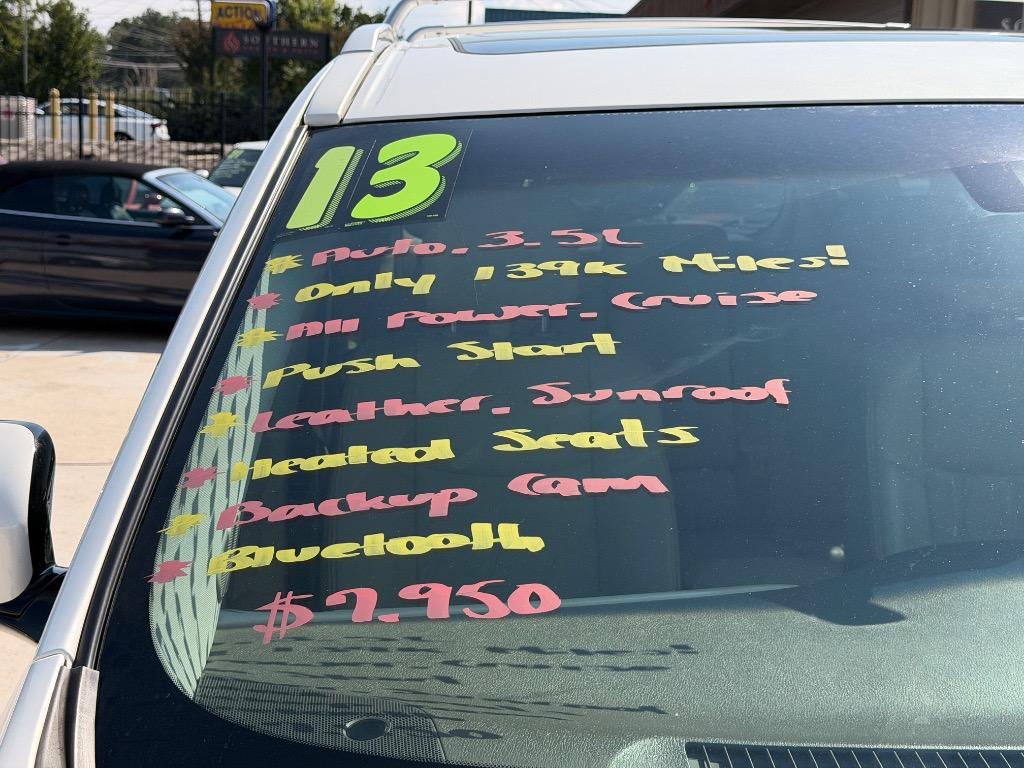 ACTION
SOUTHERN
13
Auto. 3.5L
Only 139k Miles!
All Power. Cruise
Push Start
Leather. Sunroof
Heated Seats
Backup Cam
Bluetooth
$7.950